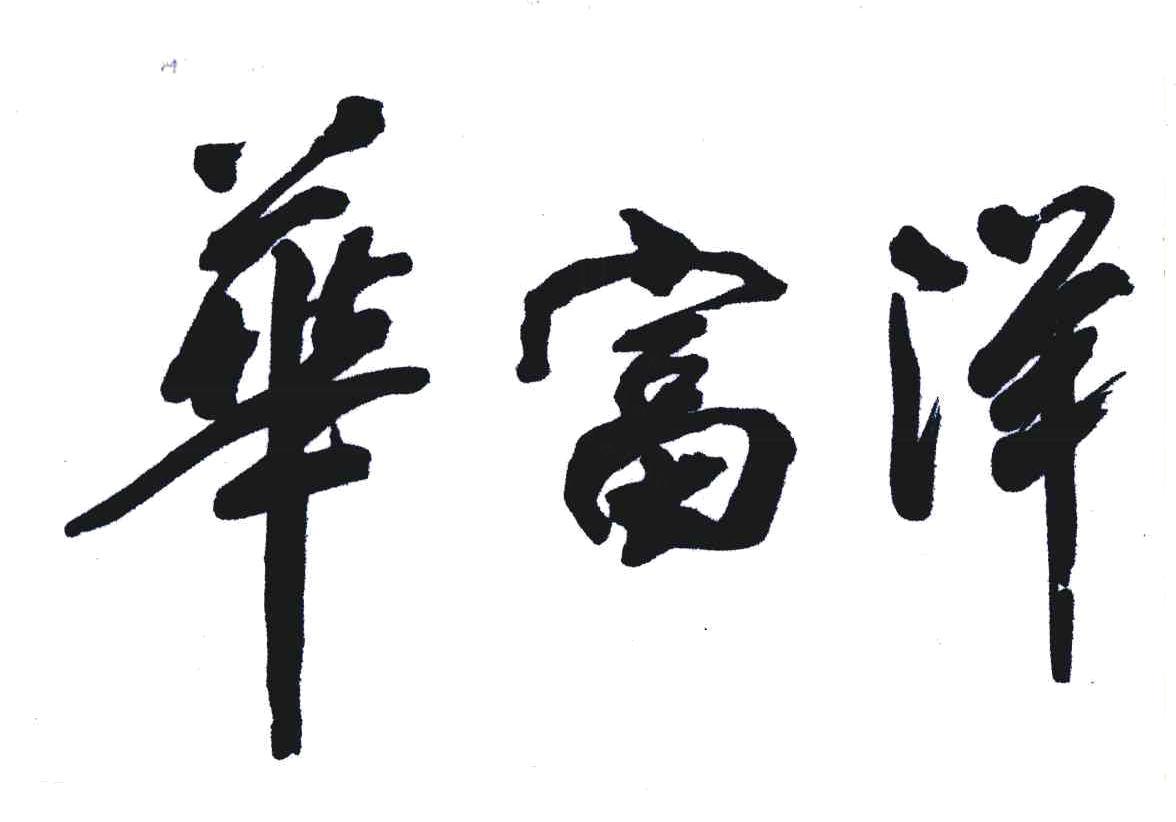 華富洋